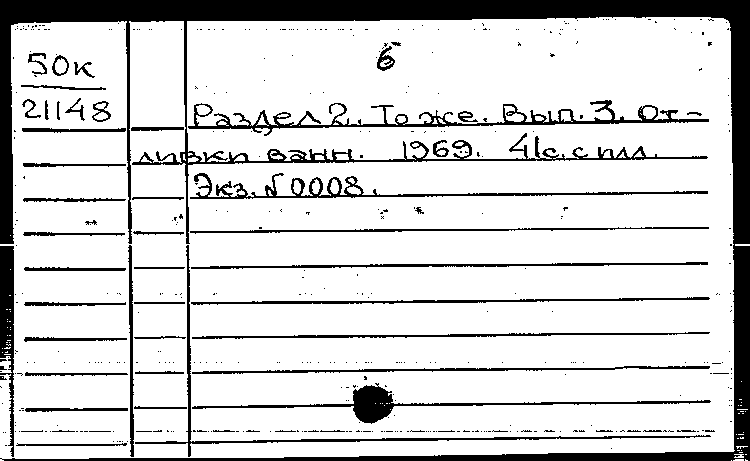 6
50к
21148
Раздел 2. То же. Вып. 3. От-
ливки ванн. 1969. 41с. с илл.
Экз. № 0008.